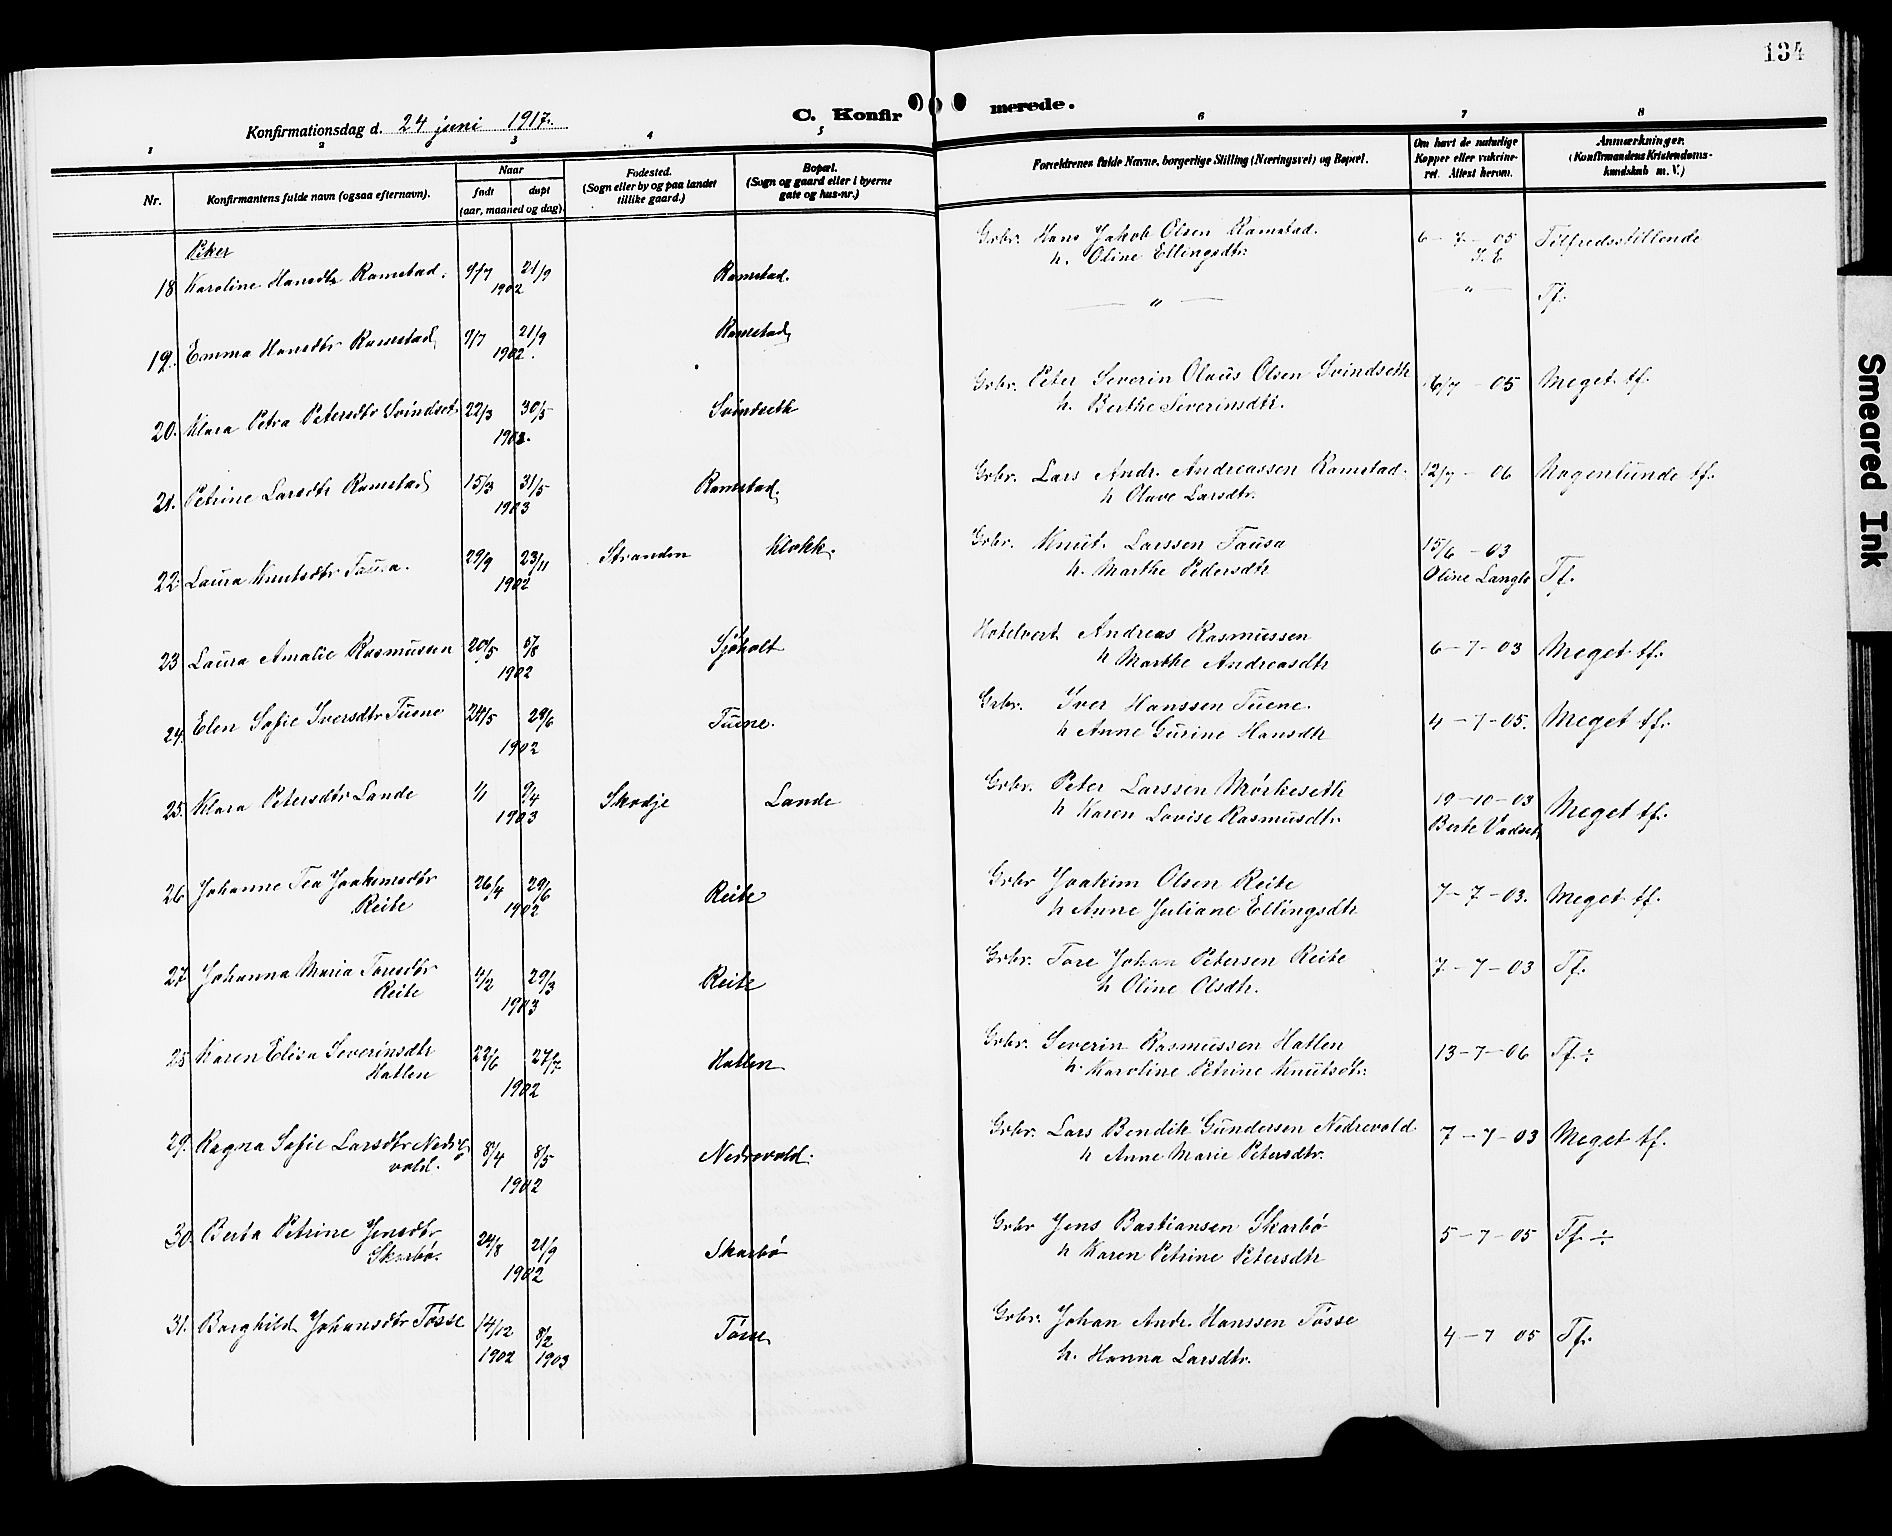 134
Konfirmationsdag d. 24 juni 1917.
C. Konfirmerede.
1 2 3 4 5 6 7 8
Nr.
Konfirmantens fulde navn (ogsaa efternavn).
Naar
født døpt
(aar, maaned og dag).
Fødested.
(Sogn eller by og paa landet
tillike gaard.)
Bopæl.
(Sogn og gaard eller i byerne
gate og hus-nr.)
Forældrenes fulde Navne, borgerlige Stilling (Næringsvei) og Bopæl.
Om havt de naturlige
Kopper eller vakcine-
ret. Attest herom.
Anmærkninger.
(Konfirmandens Kristendoms-
kundskab m. V.)
Piker
18 Karoline Hansdtr Ramstad. 9/7 21/9 1902 Ramstad. Grbr. Hans Jakob Olsen Ramstad. 6-7-05 Tilfredsstillende
h. Oline Ellingsdtr.
19. Emma Hansdtr Ramstad 9/7 21/9 1902. Ramstad — " — — " — Tf.
20. Klara Petra Petersdtr Svindset 22/3 30/5 1903. Svindseth Grbr. Peter Severin Olaus Olsen Svindseth 6/7 - 05 Meget tf.
h. Berthe Severinsdtr.
21. Petrine Larsdtr Ramstad 15/3 31/5 1903 Ramstad. Grbr. Lars Andr. Andreassen Ramstad. 12/7 - 06 Nogenlunde tf.
h Olave Larsdtr.
22. Laura Knutsdtr Fausa. 29/9 23/11 1902 Stranden Klokk. Grbr. Knut Larssen Fausa 15/6 -03
h. Marthe Pedersdtr Oline Langlo Tf.
23 Laura Amalie Rasmussen 20/5 5/8 1902 Sjøholt Hotelvert Andreas Rasmussen 6-7-03 Meget tf.
h Marthe Andreasdtr
24. Elen Sofie Iversdtr Tuene 24/5 29/6 1902 Tuene. Grbr. Iver Hanssen Tuene. 4-7-05. Meget tf.
h Anne Gurine Hansdtr
25. Klara Petersdtr Lande 1/1 9/4 1903 Skodje Lande Grbr. Peter Larssen Mørkeseth 19-10-03 Meget tf.
h Karen Lovise Rasmusdtr. Berte Vadset
26 Johanne Tea Joakimsdtr 26/4 29/6 1902 Reite Grbr Joakim Olsen Reite 7-7-03. Meget tf.
Reite h Anne Juliane Ellingsdtr
27 Johanna Maria Toresdtr 4/2 29/3 1903 Reite Grbr. Tore Johan Petersen Reite 7-7-03 Tf.
Reite h Oline Olsdtr.
28 Karen Elisa Severinsdtr 22/6 27/7 1902 Hatlen Grbr. Severin Rasmussen Hatlen 13-7-06 Tf ÷
Hatlen h. Karoline Petrine Knutsdtr.
29. Ragna Sofie Larsdtr Nedre 8/4 8/5 1902 Nedrevold. Grbr. Lars Bendik Gundersen Nedrevold. 7-7-03 Meget tf.
vold. h Anne Marie Petersdtr.
30. Berta Petrine Jensdtr 24/8 21/9 1902 Skarbø Grbr Jens Bastiansen Skarbø 5-7-05 Tf. ÷
Skarbø. h Karen Petrine Petersdtr
31. Borghild Johansdtr Tøsse 14/12 1902 8/2 1903 Tøsse Grbr. Johan Andr. Hanssen Tøsse 4-7 05 Tf.
h. Hanna Larsdtr.
Smeared Ink